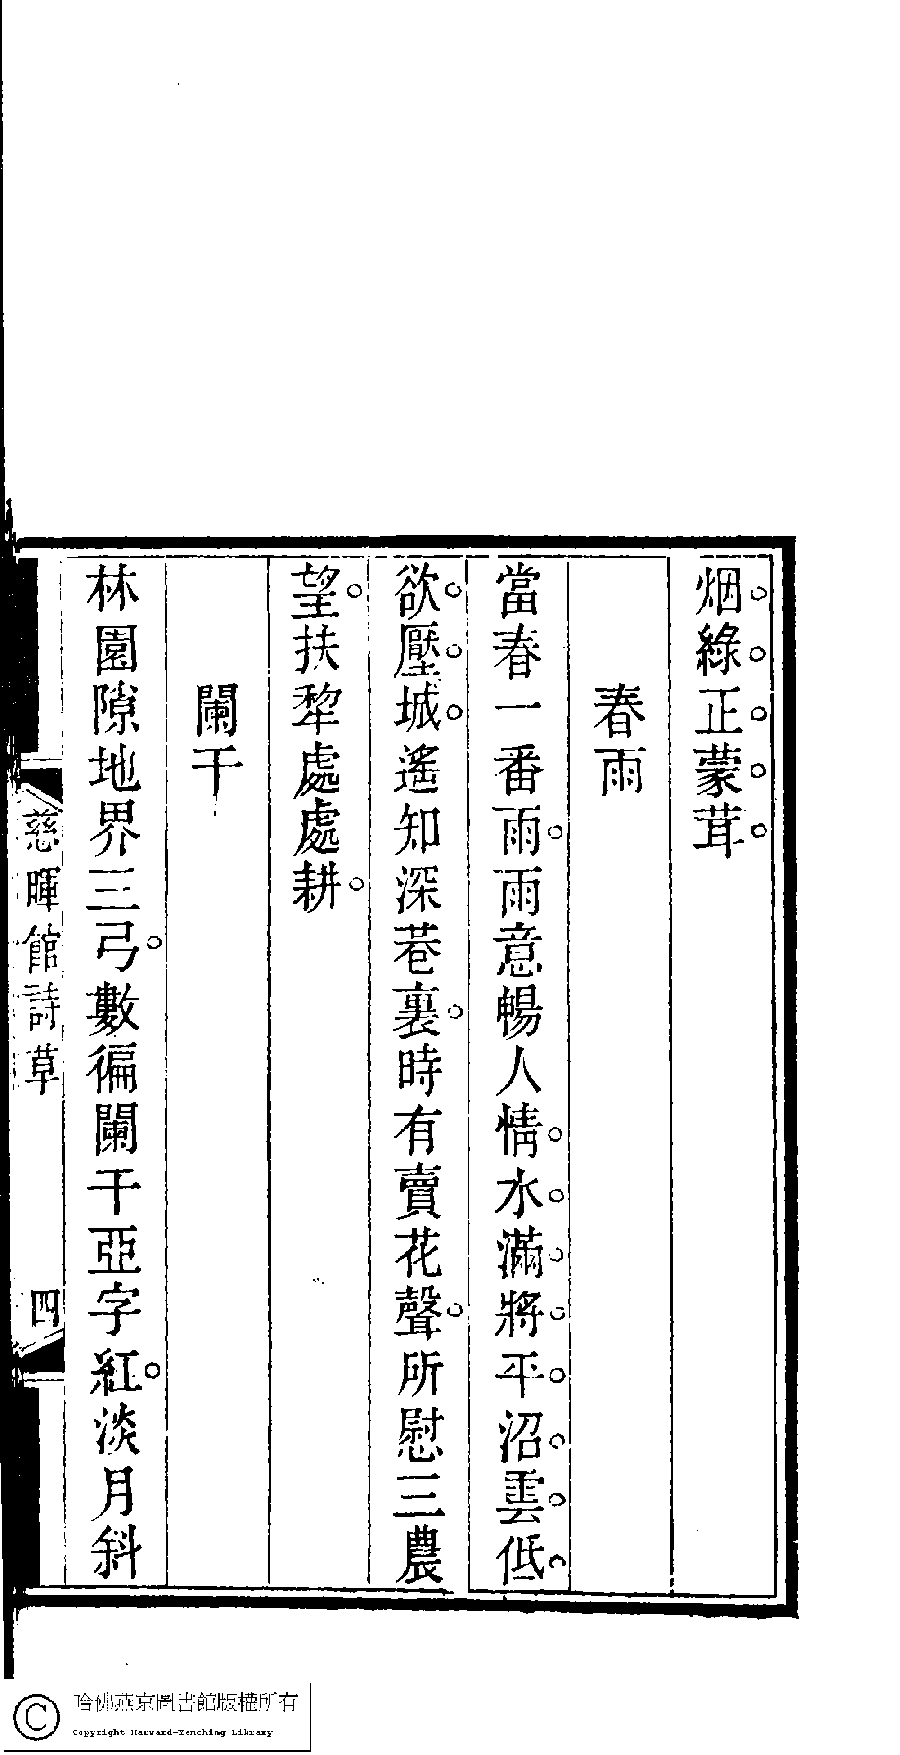 烟綠正蒙茸
春雨
當春一番雨雨意暢人情水滿將平沼雲低
欲壓城遙知深巷裏時有賣花聲所慰三農
望扶犂處處耕
闌干
林園隙地界三弓數徧闌干亞字紅淡月斜
慈暉館詩草
四
哈佛燕京圖書館版權所有
Copyright Harvard-Yenching Library